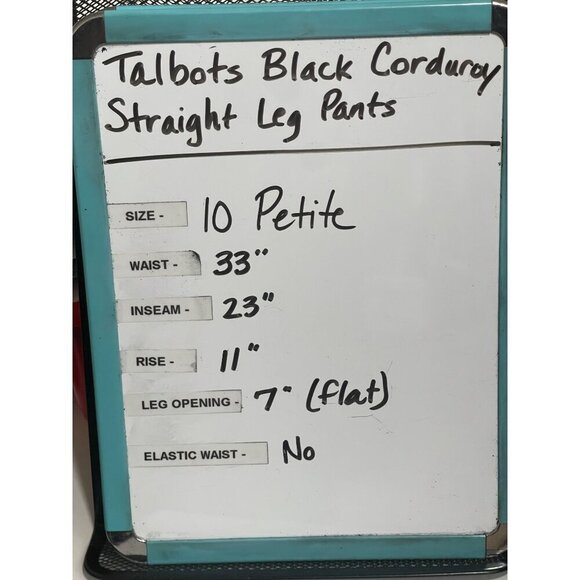 Talbots Black Corduroy
Straight Leg Pants
SIZE - 10 Petite
WAIST - 33"
INSEAM - 23"
RISE - 11"
LEG OPENING - 7" (flat)
ELASTIC WAIST - No